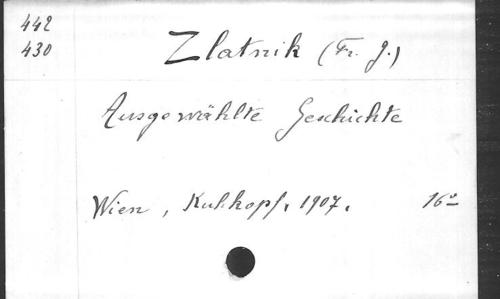 442
430
Zlatnik (Fr. J.)
Ausgewählte Geschichte
Wien, Kuhkopf, 1907. 16°